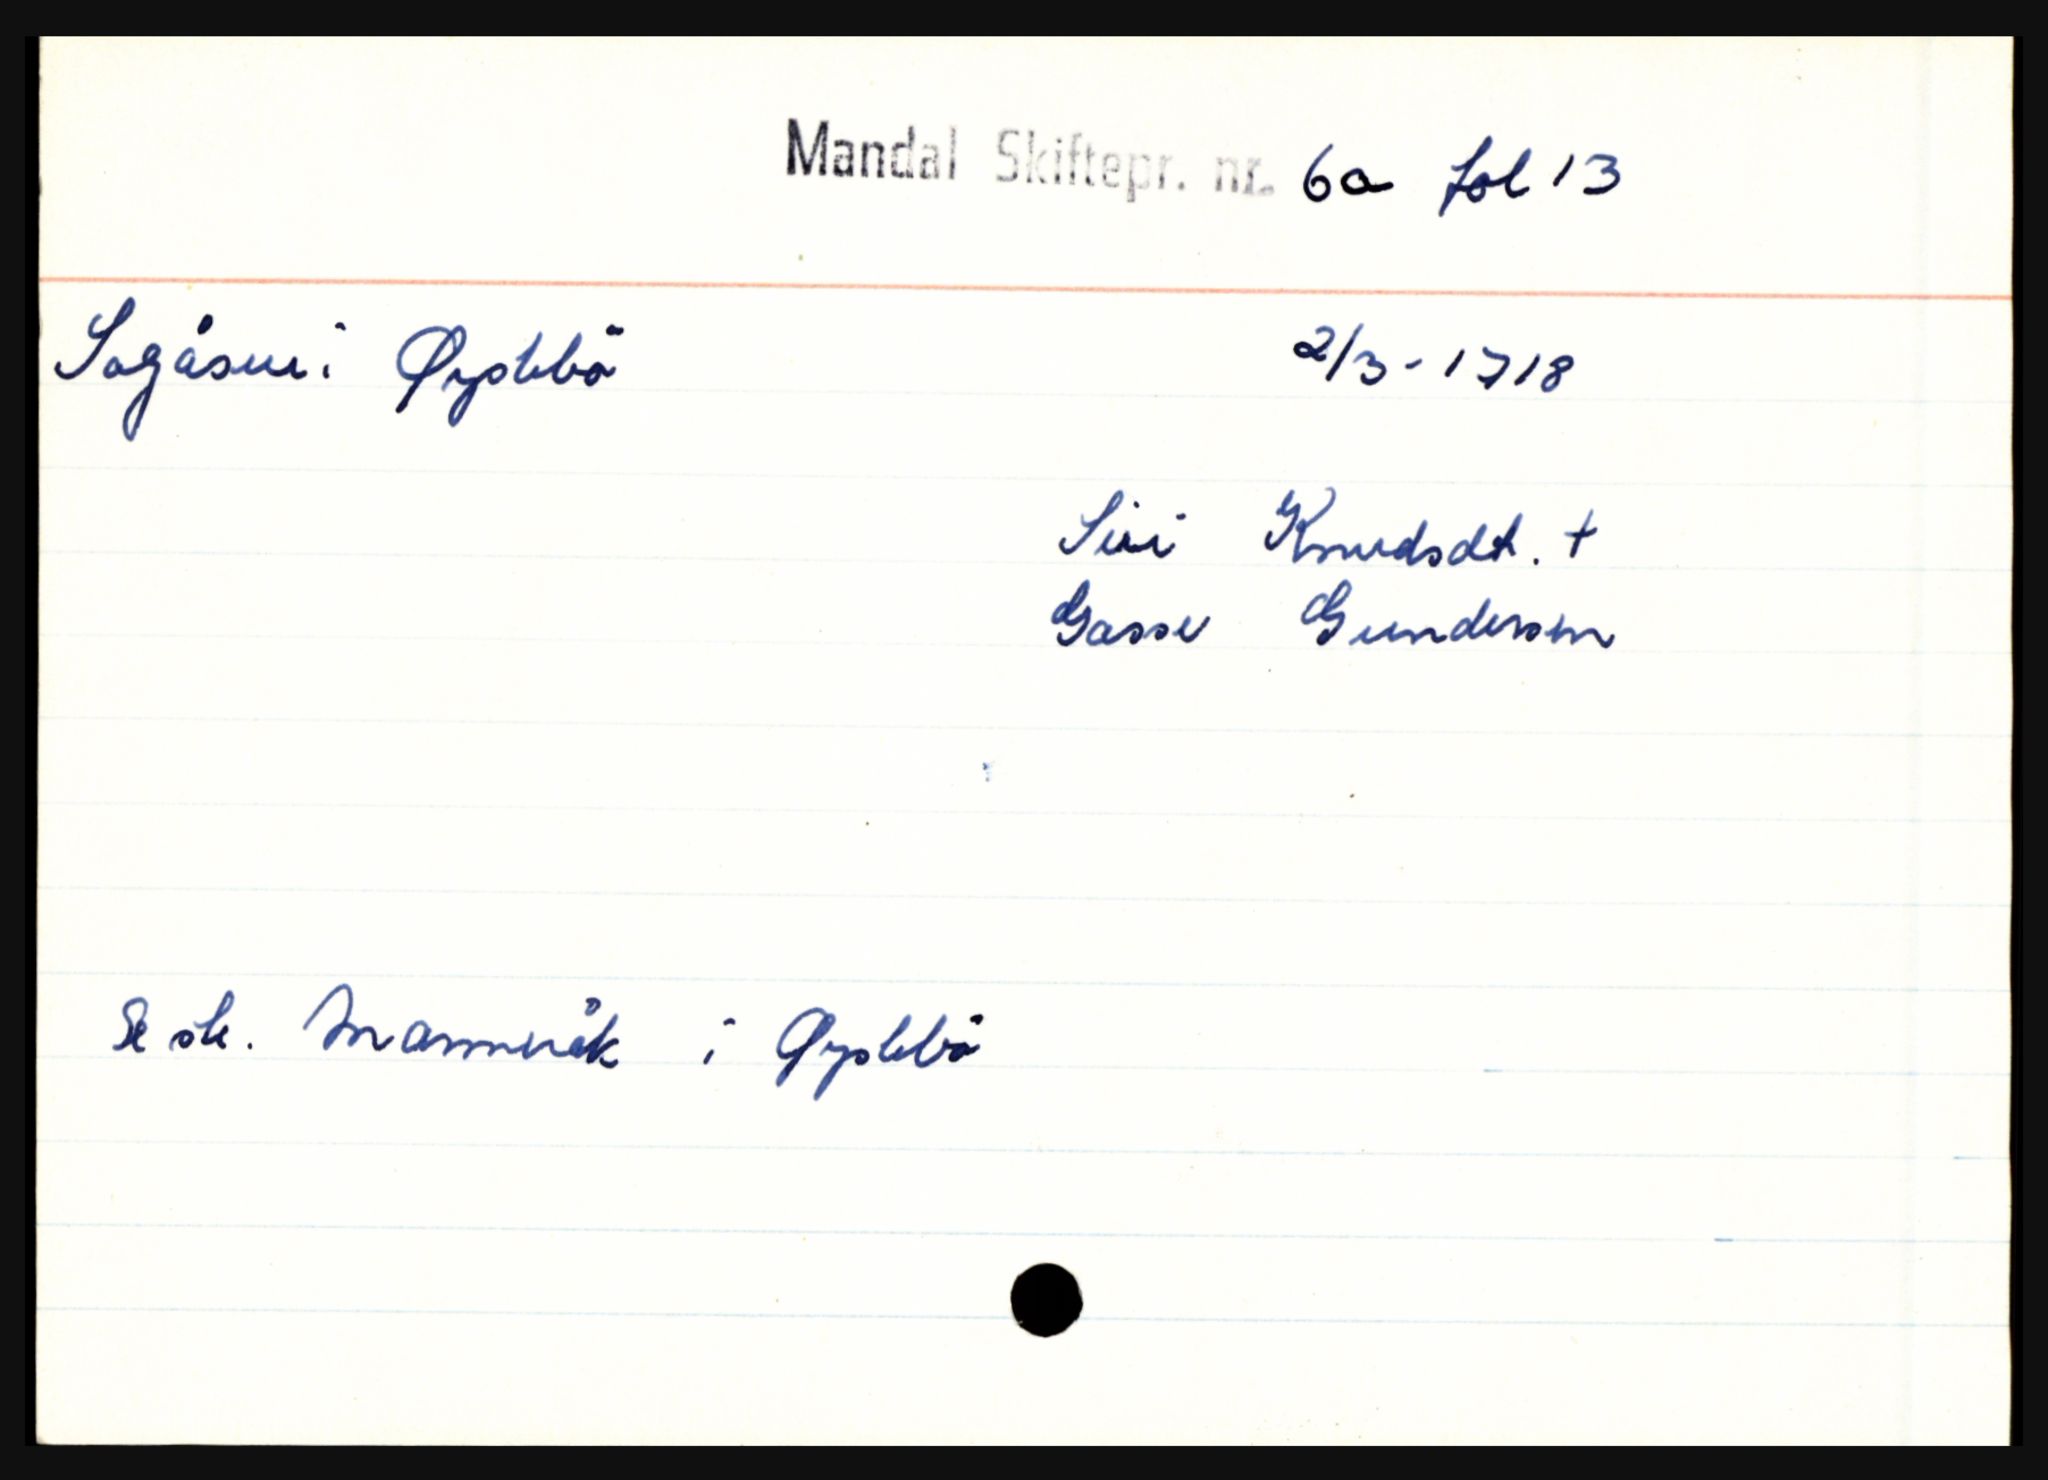 Mandal Skiftepr. nr. 6a fol 13
Sogåsen i Øyslebö 2/3-1718
Siri Knudsdt. +
Gasse Gundersen
Se sk. Mannevåk i Øyslebö